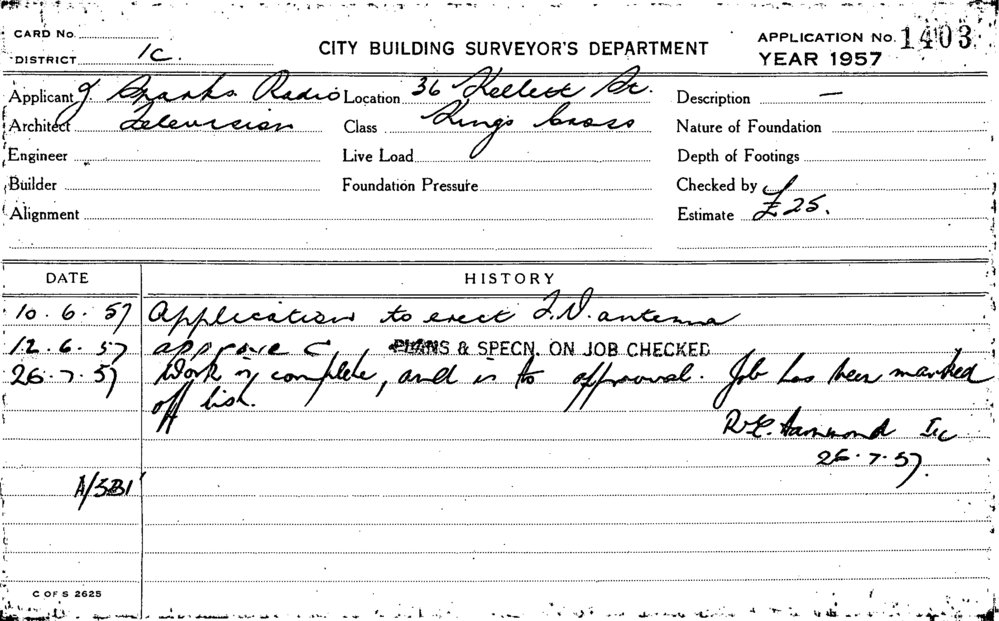 CARD No.
DISTRICT 1C.
CITY BUILDING SURVEYOR'S DEPARTMENT
APPLICATION No. 1403
YEAR 1957
Applicant J Sparks Radio Location 36 Kellett St. Description —
Architect Television Class Kings Cross Nature of Foundation
Engineer Live Load Depth of Footings
Builder Foundation Pressure Checked by
Alignment Estimate £25.
DATE HISTORY
10.6.57 Application to erect T.V. antenna
12.6.57 approve PLANS & SPECN. ON JOB CHECKED
26.7.57 Work is complete, and is to approval. Job has been marked
off list.
Hammond
26.7.57.
C OF S 2625